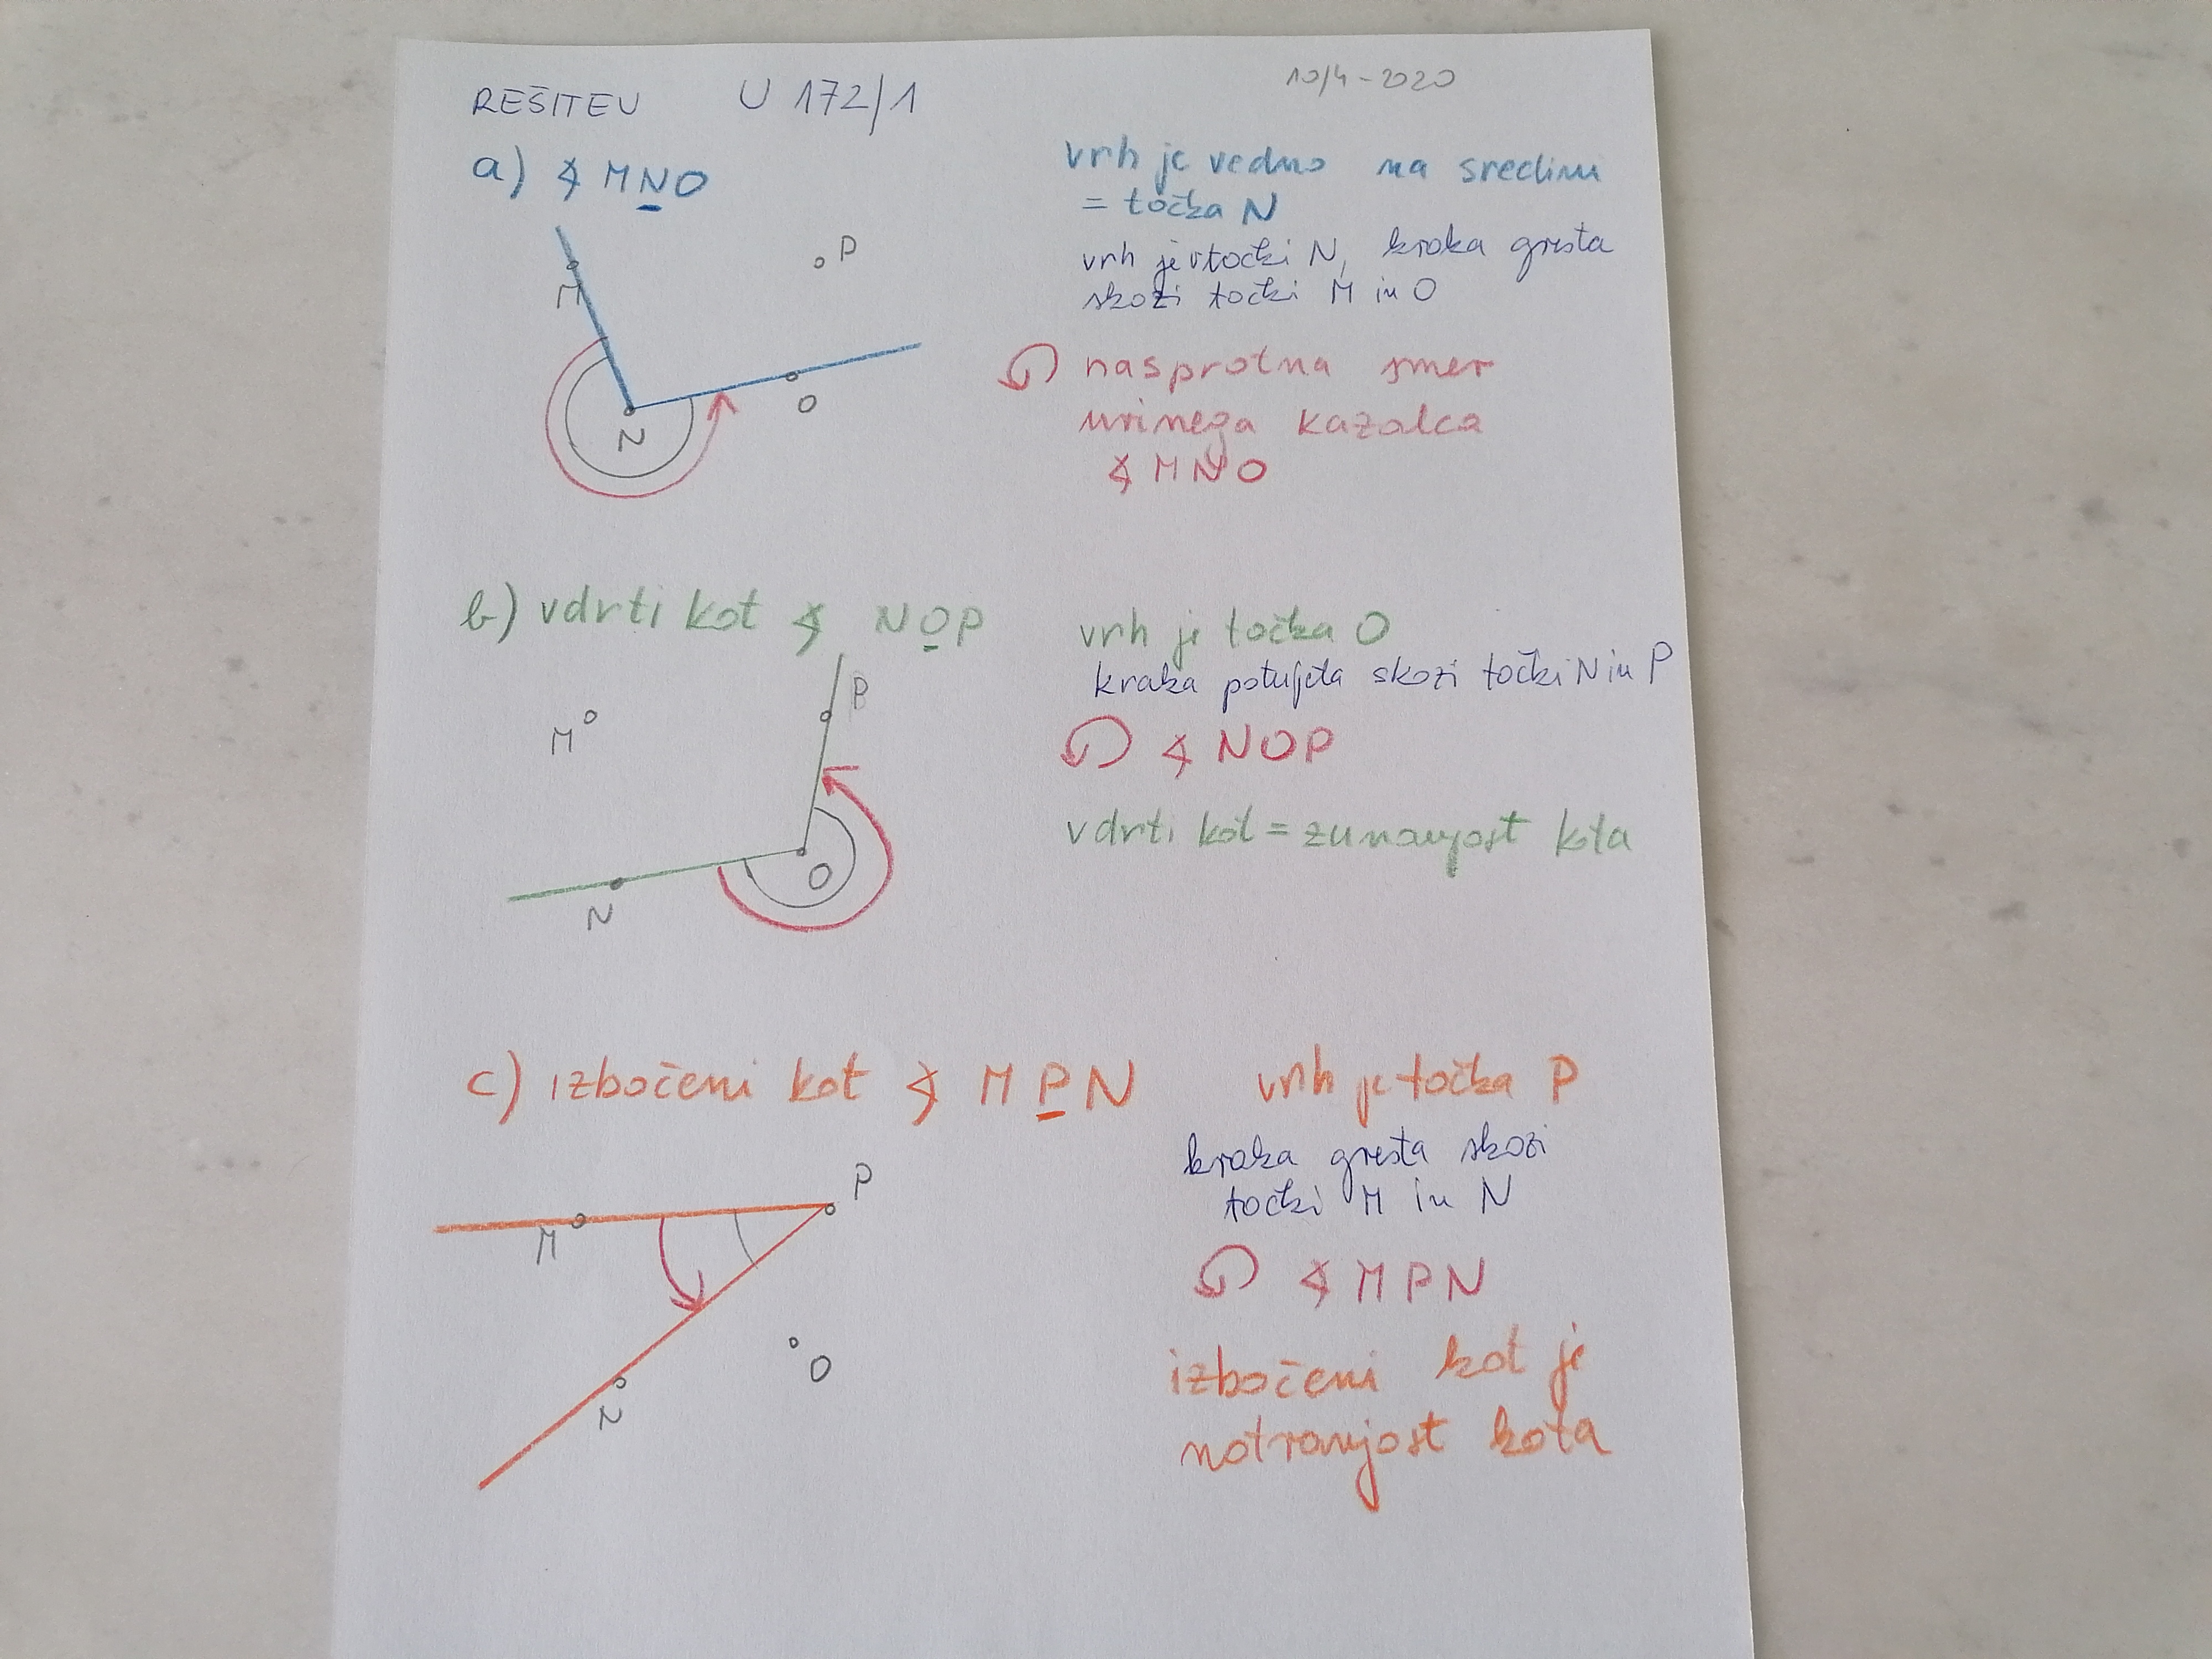 REŠITEV U 172/1
10/4-2020
a) ∢ MNO
vrh je vedno na sredini
= točka N
vrh je v točki N, kraka gresta
skozi točki M in O
P
M
O
N
nasprotna smer
urinega kazalca
∢ MNO
b) vdrti kot ∢ NOP
vrh je točka O
kraka potujeta skozi točki N in P
P
M
∢ NOP
vdrti kot = zunanjost kota
O
N
c) izbočeni kot ∢ MPN
vrh je točka P
kraka gresta skozi
točki M in N
P
M
∢ MPN
O
N
izbočeni kot je
notranjost kota